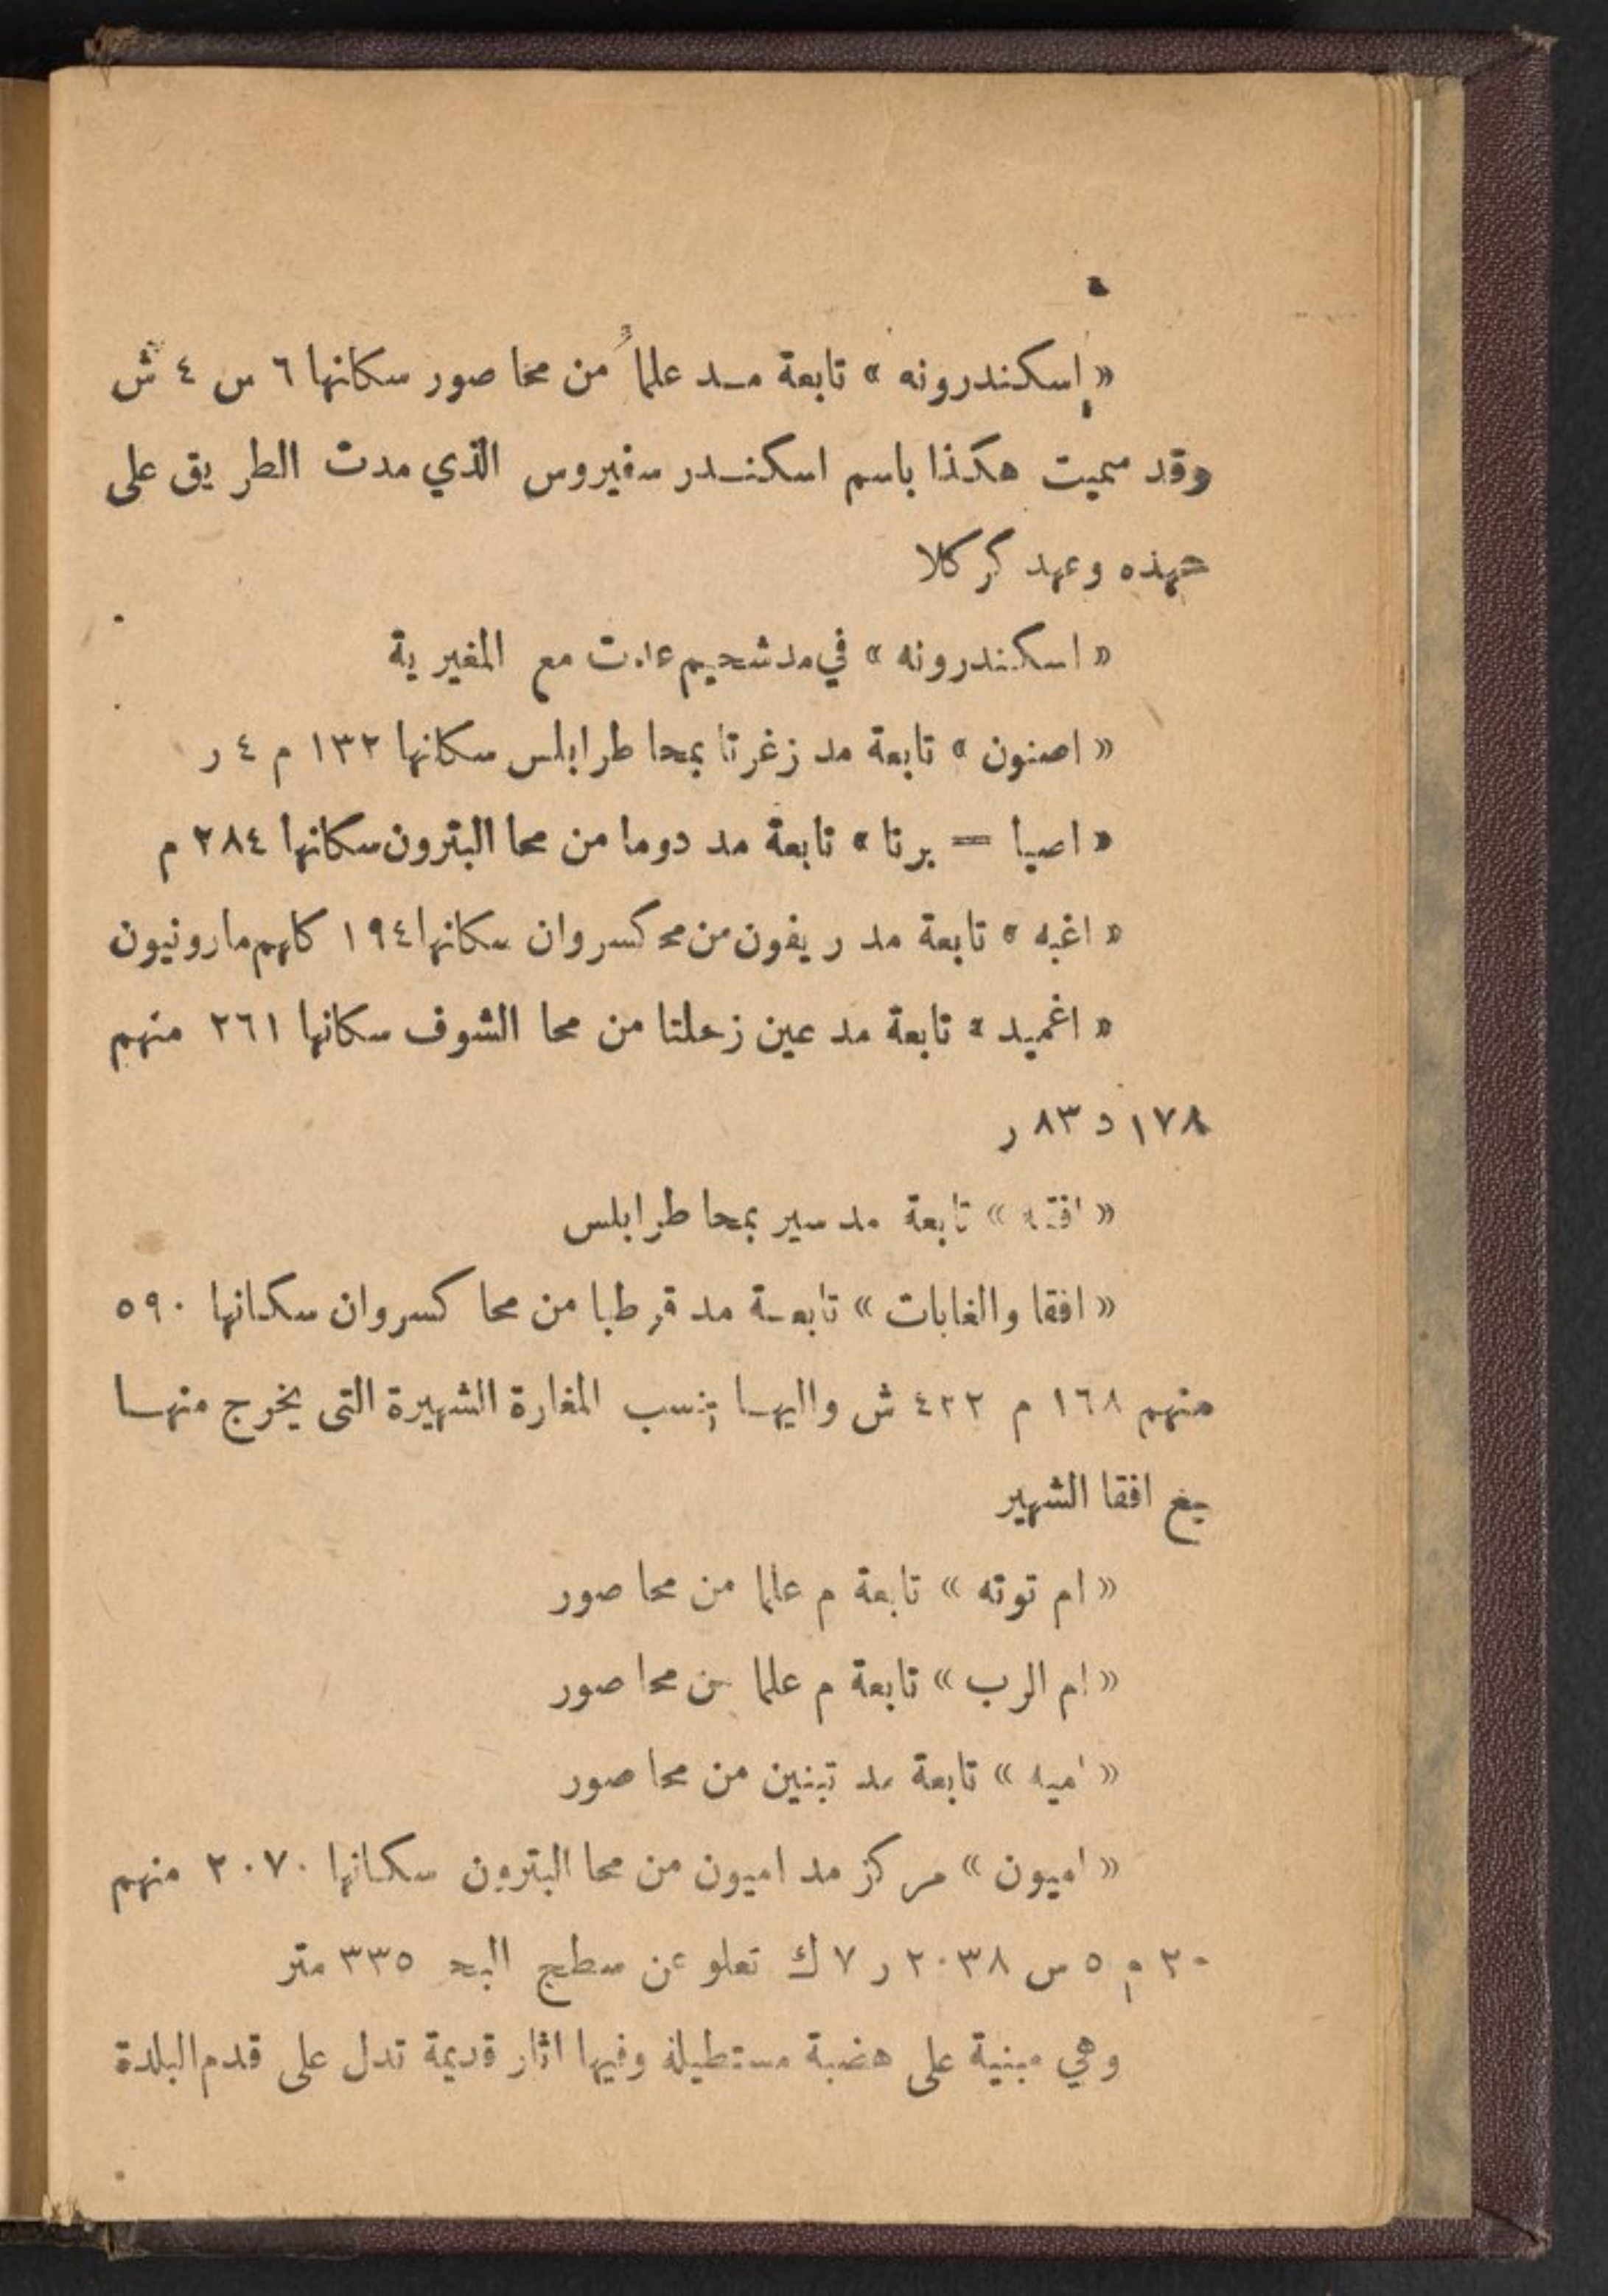 « اسكندرونه » تابعة مد علما من محا صور سكانها ٦ س ٤ ش
وقد سميت هكذا باسم اسكندر سفيروس الذي مدت الطريق على
عهده وعهد كركلا
« اسكندرونه » في مد شحيم عدت مع المغيرية
« اصنون » تابعة مد زغرتا بمحا طرابلس سكانها ١٣٢ م ٤ ر
« اصيا = برتا » تابعة مد دوما من محا البترون سكانها ٢٨٤ م
« اغبه » تابعة مد ريفون من مح كسروان سكانها ١٩٤ كلهم مارونيون
« اغميد » تابعة مد عين زحلتا من محا الشوف سكانها ٢٦١ منهم
١٧٨ د ٨٣ ر
« افقه » تابعة مد سير بمحا طرابلس
« افقا والغابات » تابعة مد قرطبا من محا كسروان سكانها ٥٩٠
منهم ١٦٨ م ٤٢٢ ش واليها تنسب المغارة الشهيرة التى يخرج منها
افقا الشهير
« ام توته » تابعة م علما من محا صور
« ام الرب » تابعة م علما من محا صور
« اميه » تابعة مد تبنين من محا صور
« اميون » مركز مد اميون من محا البترون سكانها ٢٠٧٠ منهم
٢٠ م ٥ س ٢٠٣٨ ر ٧ ك تعلو عن سطح البحر ٣٣٥ متر
وهي مبنية على هضبة مستطيلة وفيها اثار قديمة تدل على قدم البلدة